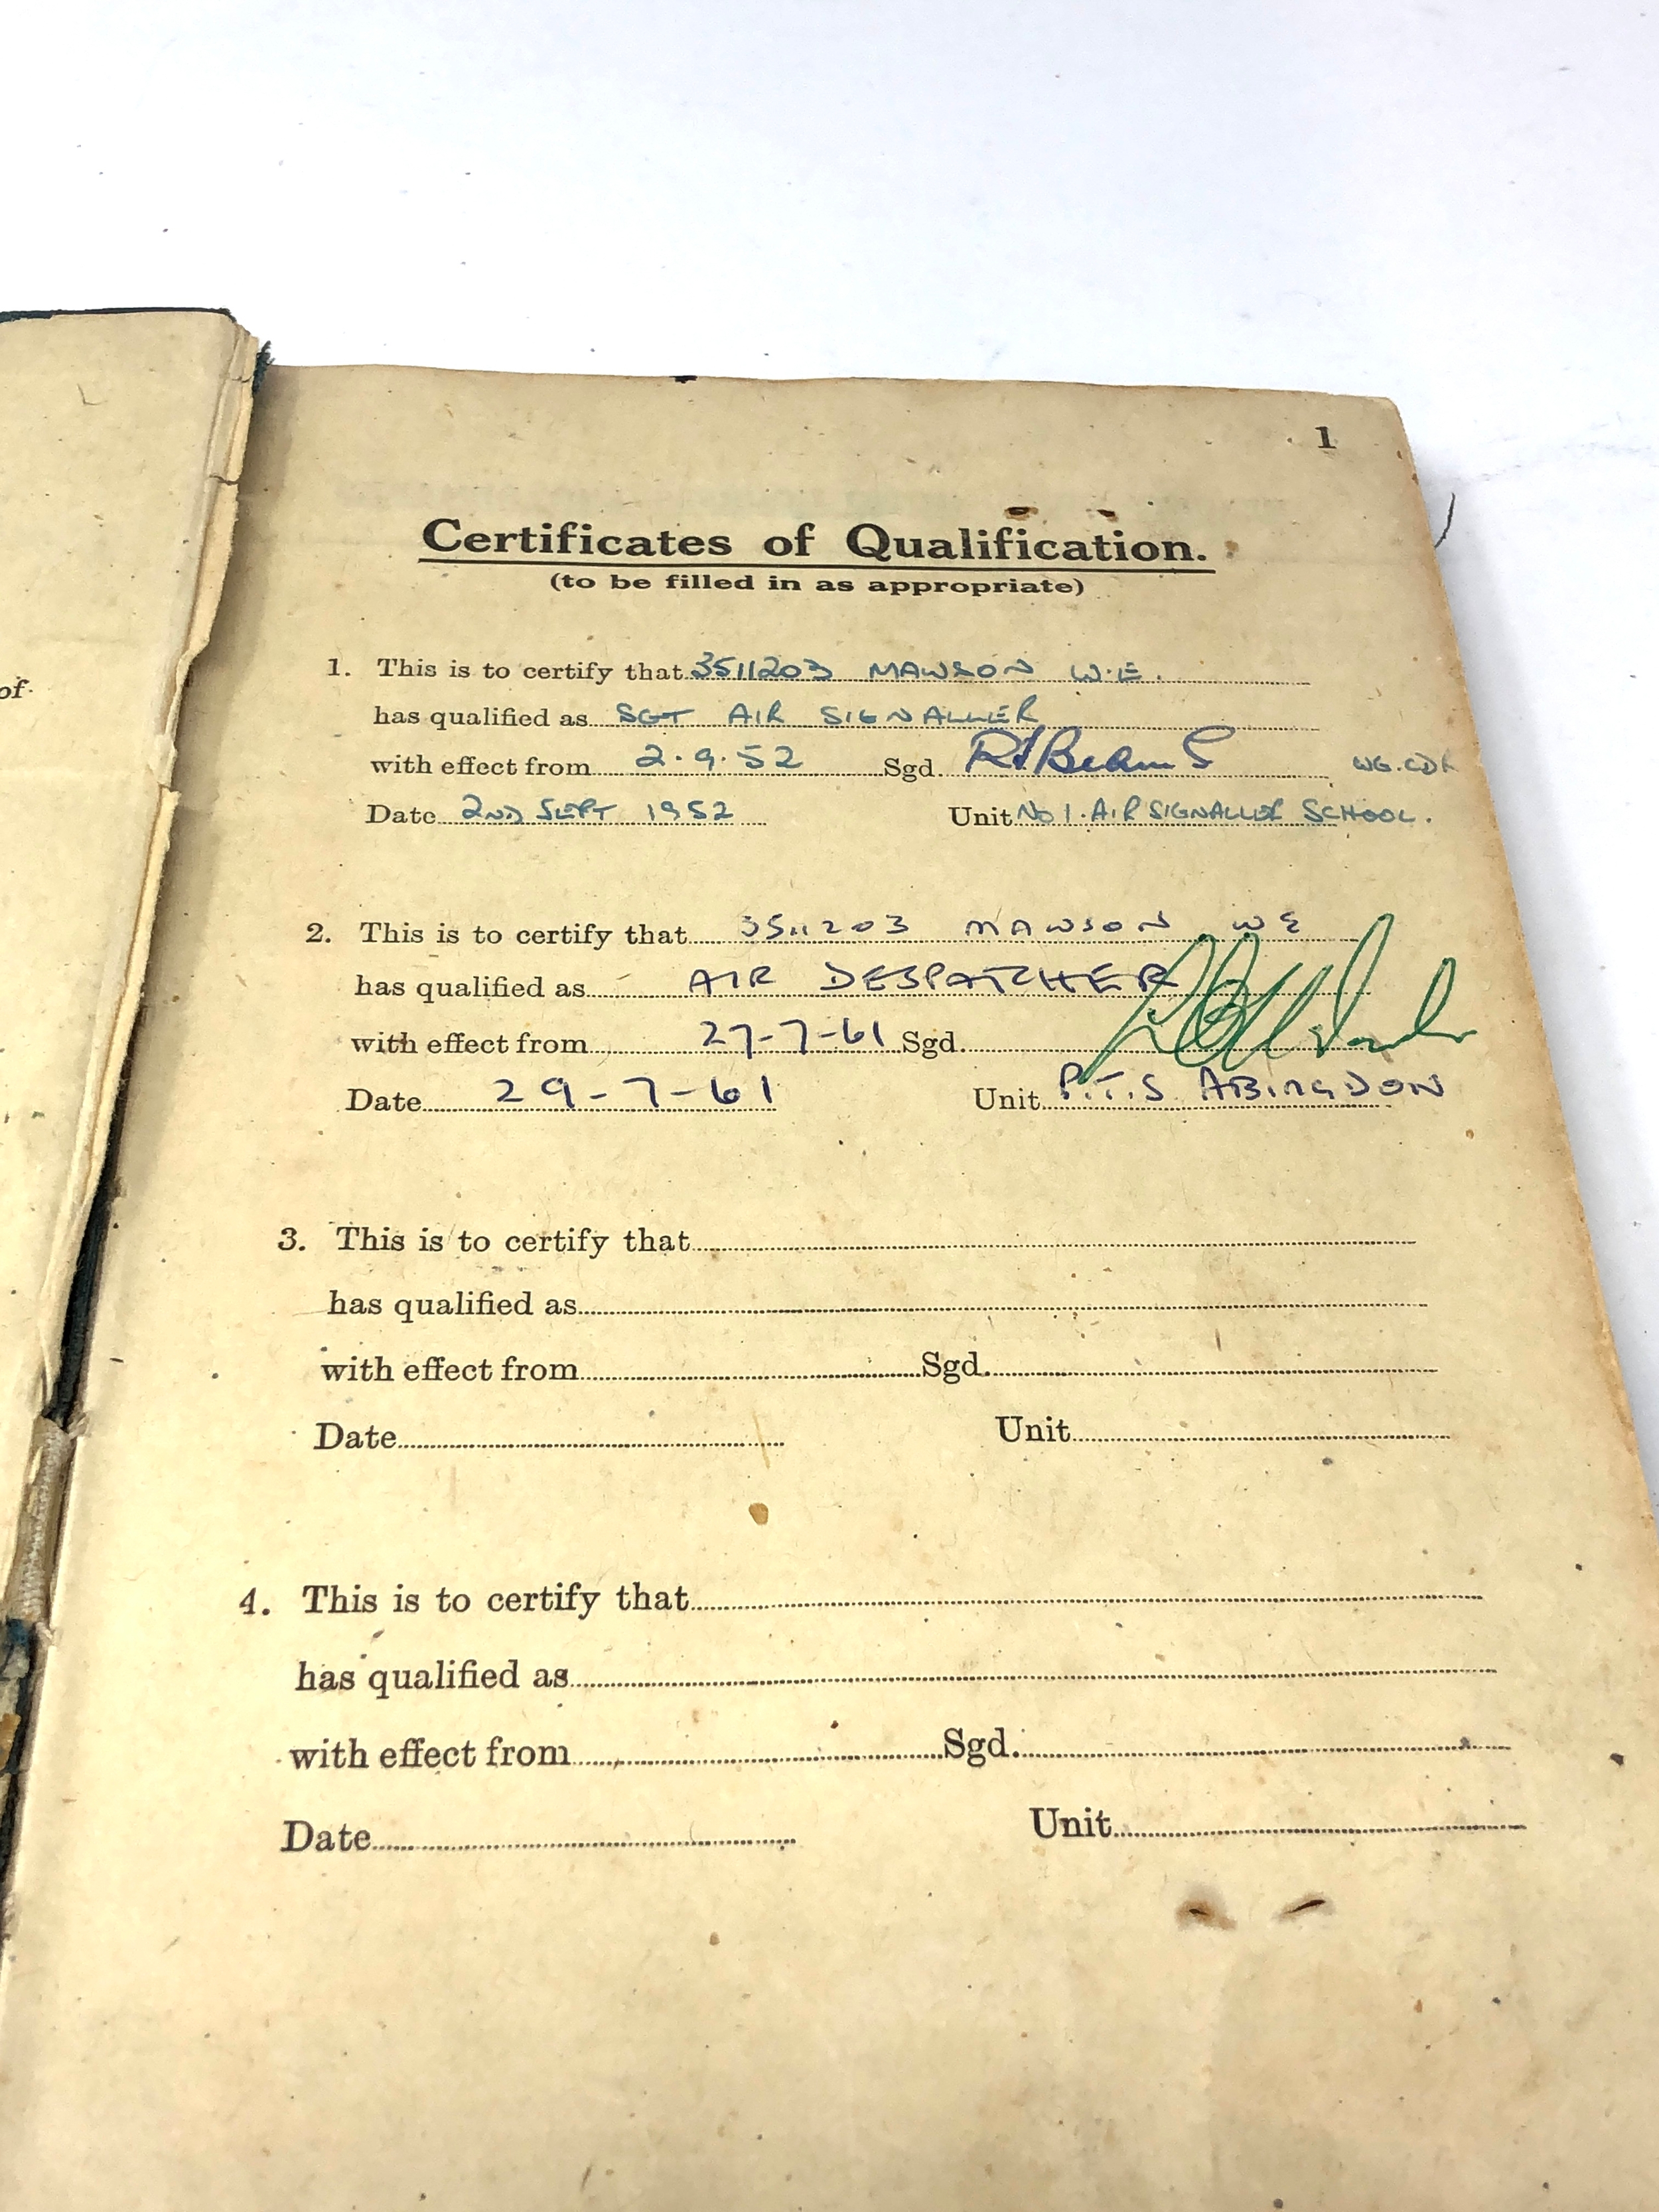 of
1
Certificates of Qualification.
(to be filled in as appropriate)
1. This is to certify that 3511203 MAWSON W.E.
has qualified as SGT AIR SIGNALLER
with effect from 2.9.52 Sgd. WG.CDR
Date 2ND SEPT 1952 Unit No 1. AIR SIGNALLER SCHOOL.
2. This is to certify that 3511203 MAWSON WE
has qualified as AIR DESPATCHER
with effect from 27-7-61 Sgd.
Date 29-7-61 Unit P.T.S ABINGDON
3. This is to certify that
has qualified as
with effect from Sgd.
Date Unit
4. This is to certify that
has qualified as
with effect from Sgd.
Date Unit